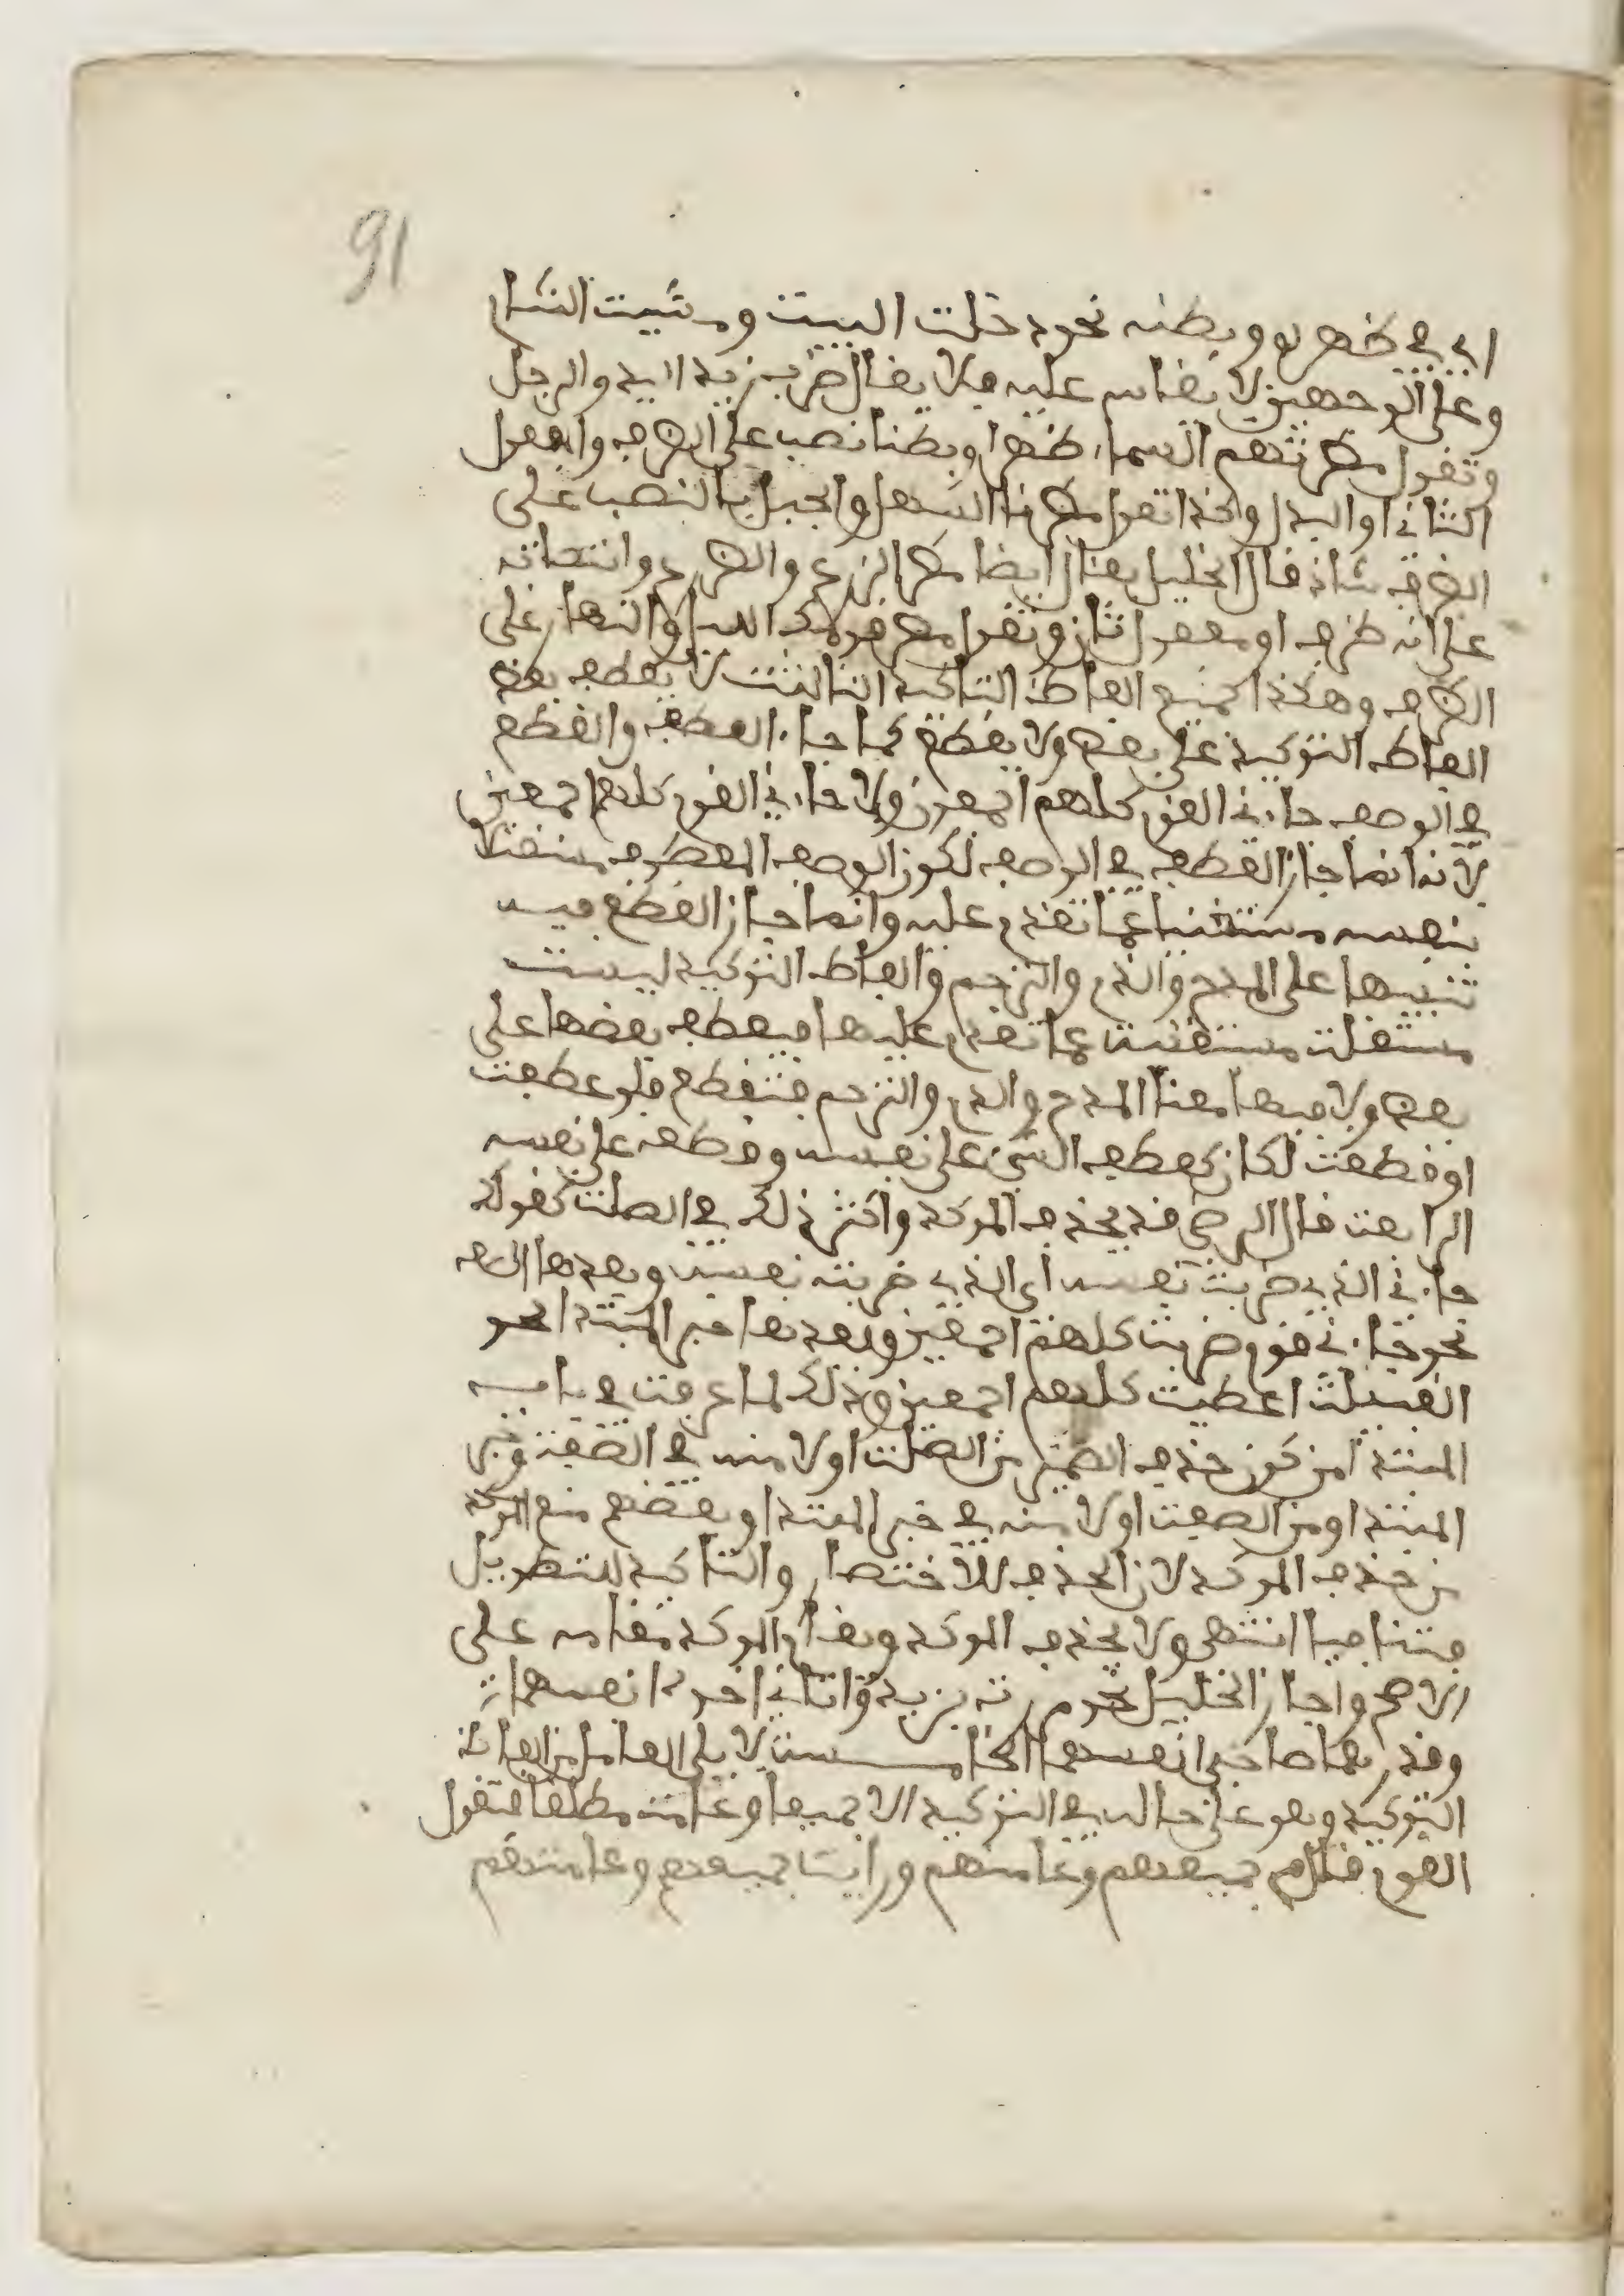 91
اي في ظهره وبطنه نحو دخلت البيت ومشيت الشام
وعلى الوجهين لا يقاس عليه فلا يقال ضرب زيد اليد والرجل
وتقول مطرتهم السماء ظهرا وبطنا نصب على الظرف والمفعول
الثاني او البدل وكذا تقول مطرنا السهل والجبل بالنصب على
الظرف شاذ قال الخليل يقال ايضا مطر الزرع والضرع وانتصابه
على انه ظرف او مفعول ثان وتقول مطر قومك الليل والنهار على
الظرف وهكذا جميع الفاظ التاكيد الثالثة لا يعطف بعض
الفاظ التوكيد على بعض ولا يقطع كما جاء العطف والقطع
في الوصف جاءني القوم كلهم اجمعون ولا جاءني القوم كلهم اجمعين
لانه انما جاز العطف في الوصف لكون الوصف المعطوف مستقلا
بنفسه مستغنيا عما تقدم عليه وانما جاز القطع فيه
تنبيها على المدح والذم والترحم والفاظ التوكيد ليست
مستقلة مستغنية عما تقدم عليها فيعطف بعضها على
بعض ولا فيها معنا المدح والذم والترحم فتقطع فلو عطفت
او قطعت لكان كعطف الشيء على نفسه وقطعه على نفسه
الرابعة قال الرضي قد يحذف الموكد واكثر ذلك في الصلة كقولك
جاءني الذي ضربت نفسه اي الذي ضربته نفسه وبعدها الصفة
نحو جاءني قوم ضربت كلهم اجمعين وبعدها خبر المبتدا نحو
القبيلة اعطيت كلهم اجمعين وذلك لما عرفت في باب
المبتدا من كون حذف الضمير من الصلة اولا منه في الصفة وخبر
المبتدا ومن الصفة اولا منه في خبر المبتدا وبعضهم منع الموكد
من حذف الموكد لان الحذف للاختصار والتاكيد للتطويل
فتنافيا انتهى ولا يحذف الموكد ويقام الموكد مقامه على
الاصح واجاز الخليل نحو مررت بزيد واتاني اخوه انفسهما
وقدر هما صاحبي انفسهما الخامسة لا يلي العامل من الفاظ
التوكيد وهو على حاله في التوكيد الا جميعا وعامة مطلقا فتقول
القوم قام جميعهم وعامتهم ورايت جميعهم وعامتهم